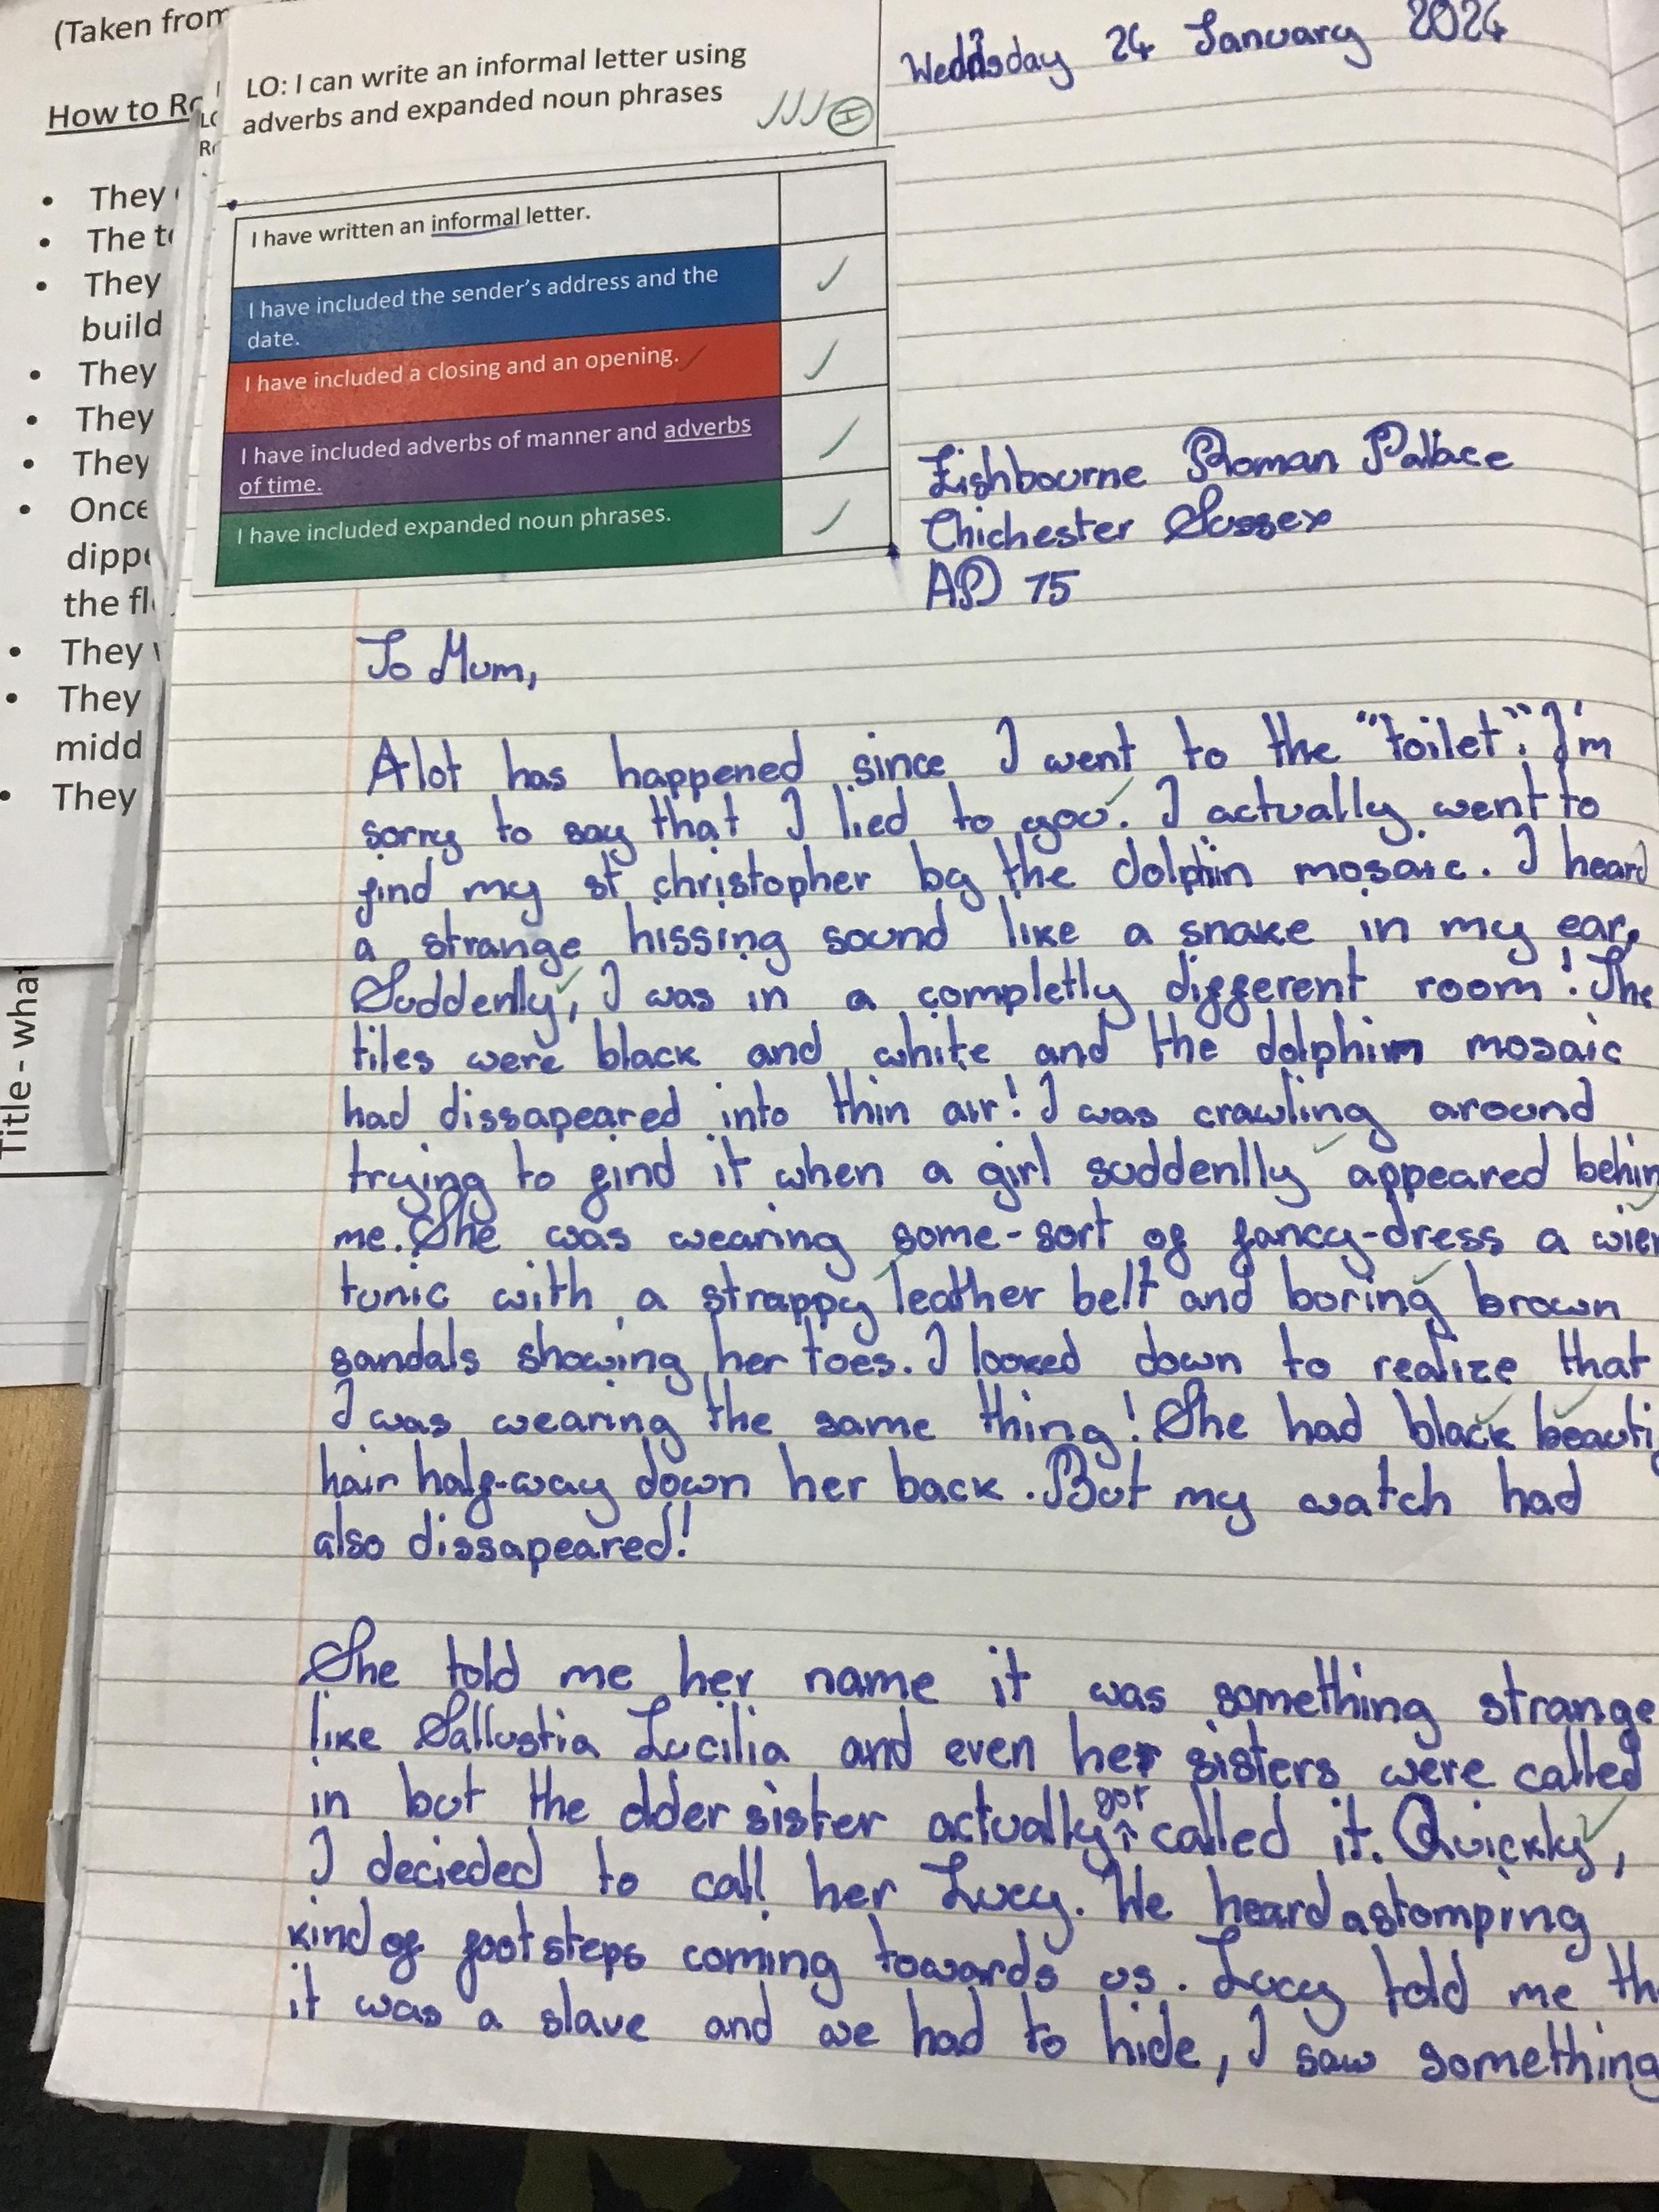 (Taken from
How to Ro
They
The to
They
build
They
They
They
Once
dippe
the fl
They
They
midd
They
Title - what
LO: I can write an informal letter using
adverbs and expanded noun phrases
I have written an informal letter.
I have included the sender's address and the
date.
I have included a closing and an opening.
I have included adverbs of manner and adverbs
of time.
I have included expanded noun phrases.
24 January 2024
Fishbourne Roman Pallace
Chichester Sussex
AD 75
To Mum,
Alot has happened since I went to the "toilet". I'm
sorry to say that I lied to you. I actually went to
find my st christopher by the dolphin mosaic. I heard
a strange hissing sound like a snake in my ear.
Suddenlly, I was in a completly different room! The
tiles were black and white and the dolphin mosaic
had dissapeared into thin air! I was crawling around
trying to find it when a girl suddenlly appeared behin
me. She was wearing some-sort of fancy-dress a wier
tunic with a strappy leather belt and boring brown
sandals showing her toes. I looked down to realize that
I was wearing the same thing! She had black beauti
hair half-way down her back. But my watch had
also dissapeared!
She told me her name it was something strange
like Sallustia Lucilia and even her sisters were called
in but the older sister actually got called it. Quickly,
I decieded to call her Lucy. We heard a stomping
kind of footsteps coming towards us. Lucy told me th
it was a slave and we had to hide, I saw something